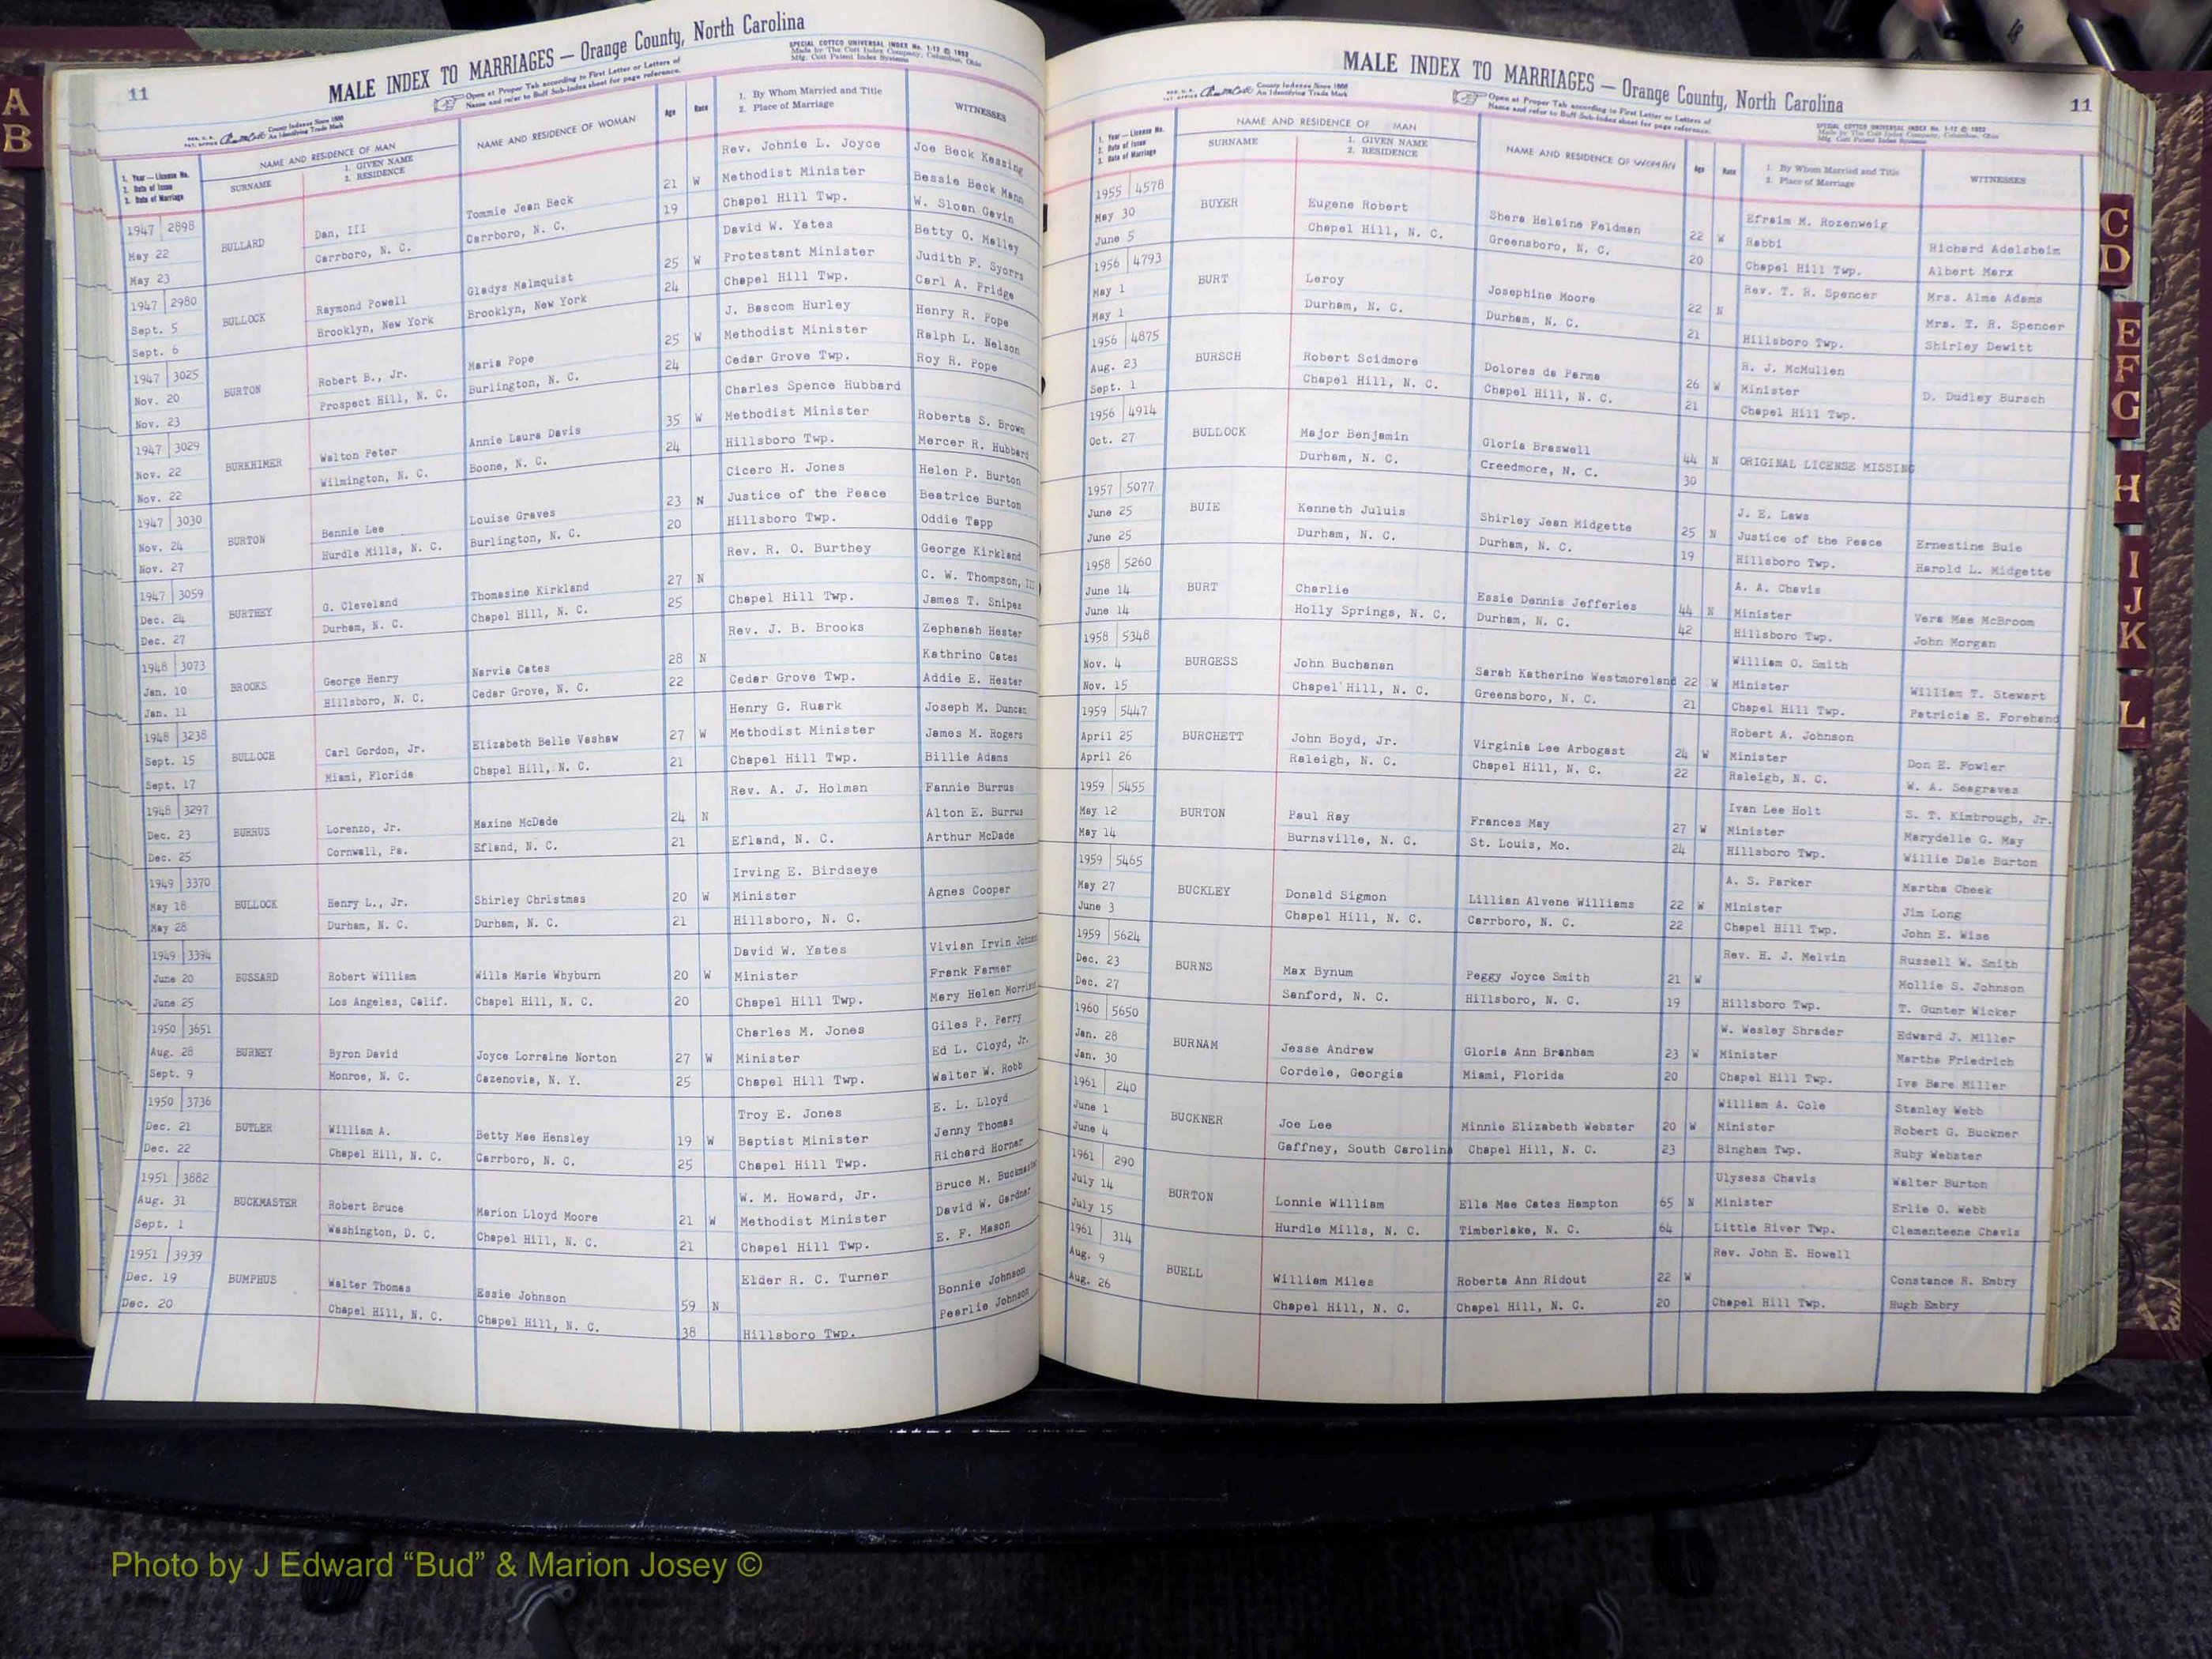 A
B
11
MALE INDEX TO MARRIAGES — Orange County, North Carolina
SPECIAL COTTCO UNIVERSAL INDEX No. 1-12 © 1952
Made by The Cott Index Company, Columbus, Ohio
Mfg. Cott Patent Index Systems
Open at Proper Tab according to First Letter or Letters of
Name and refer to Buff Sub-Index sheet for page reference.
County Indexes Since 1888
An Identifying Trade Mark
1. Year — License No.
2. Date of Issue
3. Date of Marriage
NAME AND RESIDENCE OF MAN
SURNAME
1. GIVEN NAME
2. RESIDENCE
NAME AND RESIDENCE OF WOMAN
Age
Race
1. By Whom Married and Title
2. Place of Marriage
WITNESSES
Rev. Johnie L. Joyce Joe Beck Kessing
1947 2898 BULLARD Dan, III Tommie Jean Beck 21 W Methodist Minister Bessie Beck Mann
May 22 Carrboro, N. C. Carrboro, N. C. 19 Chapel Hill Twp. W. Sloan Gavin
May 23
David W. Yates Betty O. Malley
1947 2980 BULLOCK Raymond Powell Gladys Malmquist 25 W Protestant Minister Judith F. Syorrs
Sept. 5 Brooklyn, New York Brooklyn, New York 24 Chapel Hill Twp. Carl A. Pridge
Sept. 6
J. Bascom Hurley Henry R. Pope
1947 3025 BURTON Robert B., Jr. Maria Pope 25 W Methodist Minister Ralph L. Nelson
Nov. 20 Prospect Hill, N. C. Burlington, N. C. 24 Cedar Grove Twp. Roy R. Pope
Nov. 23
Charles Spence Hubbard
1947 3029 BURKHIMER Walton Peter Annie Laura Davis 35 W Methodist Minister Roberta S. Brown
Nov. 22 Wilmington, N. C. Boone, N. C. 24 Hillsboro Twp. Mercer R. Hubbard
Nov. 22
Cicero H. Jones Helen P. Burton
1947 3030 BURTON Bennie Lee Louise Graves 23 N Justice of the Peace Beatrice Burton
Nov. 24 Hurdle Mills, N. C. Burlington, N. C. 20 Hillsboro Twp. Oddie Tapp
Nov. 27
Rev. R. O. Burthey George Kirkland
1947 3059 BURTHEY G. Cleveland Thomasine Kirkland 27 N C. W. Thompson, III
Dec. 24 Durham, N. C. Chapel Hill, N. C. 25 Chapel Hill Twp. James T. Snipes
Dec. 27
Rev. J. B. Brooks Zephanah Hester
1948 3073 BROOKS George Henry Narvis Cates 28 N Kathrino Cates
Jan. 10 Hillsboro, N. C. Cedar Grove, N. C. 22 Cedar Grove Twp. Addie E. Hester
Jan. 11
Henry G. Ruark Joseph M. Duncan
1948 3238 BULLOCH Carl Gordon, Jr. Elizabeth Belle Vashaw 27 W Methodist Minister James M. Rogers
Sept. 15 Miami, Florida Chapel Hill, N. C. 21 Chapel Hill Twp. Billie Adams
Sept. 17
Rev. A. J. Holman Fannie Burrus
1948 3297 BURRUS Lorenzo, Jr. Maxine McDade 24 N Alton E. Burrus
Dec. 23 Cornwall, Pa. Efland, N. C. 21 Efland, N. C. Arthur McDade
Dec. 25
Irving E. Birdseye
1949 3370 BULLOCK Henry L., Jr. Shirley Christmas 20 W Minister Agnes Cooper
May 18 Durham, N. C. Durham, N. C. 21 Hillsboro, N. C.
May 28
David W. Yates Vivian Irvin
1949 3394 BUSSARD Robert William Willa Marie Whyburn 20 W Minister Frank Farmer
June 20 Los Angeles, Calif. Chapel Hill, N. C. 20 Chapel Hill Twp. Mary Helen Morrison
June 25
Charles M. Jones Giles P. Perry
1950 3651 BURNEY Byron David Joyce Lorraine Norton 27 W Minister Ed L. Cloyd, Jr.
Aug. 28 Monroe, N. C. Cazenovia, N. Y. 25 Chapel Hill Twp. Walter W. Robb
Sept. 9
Troy E. Jones E. L. Lloyd
1950 3736 BUTLER William A. Betty Mae Hensley 19 W Baptist Minister Jenny Thomas
Dec. 21 Chapel Hill, N. C. Carrboro, N. C. 25 Chapel Hill Twp. Richard Horner
Dec. 22
W. M. Howard, Jr. Bruce M. Buckmaster
1951 3882 BUCKMASTER Robert Bruce Marion Lloyd Moore 21 W Methodist Minister David W. Gardner
Aug. 31 Washington, D. C. Chapel Hill, N. C. 21 Chapel Hill Twp. E. F. Mason
Sept. 1
Elder R. C. Turner Bonnie Johnson
1951 3939 BUMPHUS Walter Thomas Essie Johnson 59 N Pearlie Johnson
Dec. 19 Chapel Hill, N. C. Chapel Hill, N. C. 38 Hillsboro Twp.
Dec. 20
MALE INDEX TO MARRIAGES — Orange County, North Carolina
11
County Indexes Since 1888
An Identifying Trade Mark
Open at Proper Tab according to First Letter or Letters of
Name and refer to Buff Sub-Index sheet for page reference.
SPECIAL COTTCO UNIVERSAL INDEX No. 1-12 © 1952
Made by The Cott Index Company, Columbus, Ohio
Mfg. Cott Patent Index Systems
1. Year — License No.
2. Date of Issue
3. Date of Marriage
NAME AND RESIDENCE OF MAN
SURNAME
1. GIVEN NAME
2. RESIDENCE
NAME AND RESIDENCE OF WOMAN
Age
Race
1. By Whom Married and Title
2. Place of Marriage
WITNESSES
1955 4578 BUYER Eugene Robert Shera Heleine Feldman 22 W Efraim M. Rozenweig
May 30 Chapel Hill, N. C. Greensboro, N. C. 20 Rabbi Richard Adelsheim
June 5 Chapel Hill Twp. Albert Marx
1956 4793 BURT Leroy Josephine Moore 22 N Rev. T. R. Spencer Mrs. Alma Adams
May 1 Durham, N. C. Durham, N. C. 21 Mrs. T. R. Spencer
May 1 Hillsboro Twp. Shirley Dewitt
1956 4875 BURSCH Robert Scidmore Dolores de Parma 26 W R. J. McMullen
Aug. 23 Chapel Hill, N. C. Chapel Hill, N. C. 21 Minister D. Dudley Bursch
Sept. 1 Chapel Hill Twp.
1956 4914 BULLOCK Major Benjamin Gloria Braswell 44 N ORIGINAL LICENSE MISSING
Oct. 27 Durham, N. C. Creedmore, N. C. 30
1957 5077 BUIE Kenneth Juluis Shirley Jean Midgette 25 N J. E. Laws
June 25 Durham, N. C. Durham, N. C. 19 Justice of the Peace Ernestine Buie
June 25 Hillsboro Twp. Harold L. Midgette
1958 5260 BURT Charlie Essie Dennis Jefferies 44 N A. A. Chavis
June 14 Holly Springs, N. C. Durham, N. C. 42 Minister Vera Mae McBroom
June 14 Hillsboro Twp. John Morgan
1958 5348 BURGESS John Buchanan Sarah Katherine Westmoreland 22 W William O. Smith
Nov. 4 Chapel Hill, N. C. Greensboro, N. C. 21 Minister William T. Stewart
Nov. 15 Chapel Hill Twp. Patricia E. Forehand
1959 5447 BURCHETT John Boyd, Jr. Virginia Lee Arbogast 24 W Robert A. Johnson
April 25 Raleigh, N. C. Chapel Hill, N. C. 22 Minister Don E. Fowler
April 26 Raleigh, N. C. W. A. Seagraves
1959 5455 BURTON Paul Ray Frances May 27 W Ivan Lee Holt S. T. Kimbrough, Jr.
May 12 Burnsville, N. C. St. Louis, Mo. 24 Minister Marydelle G. May
May 14 Hillsboro Twp. Willie Dale Burton
1959 5465 BUCKLEY Donald Sigmon Lillian Alvene Williams 22 W A. S. Parker Martha Cheek
May 27 Chapel Hill, N. C. Carrboro, N. C. 22 Minister Jim Long
June 3 Chapel Hill Twp. John E. Wise
1959 5624 BURNS Max Bynum Peggy Joyce Smith 21 W Rev. H. J. Melvin Russell W. Smith
Dec. 23 Sanford, N. C. Hillsboro, N. C. 19 Mollie S. Johnson
Dec. 27 Hillsboro Twp. T. Gunter Wicker
1960 5650 BURNAM Jesse Andrew Gloria Ann Branham 23 W W. Wesley Shrader Edward J. Miller
Jan. 28 Cordele, Georgia Miami, Florida 20 Minister Martha Friedrich
Jan. 30 Chapel Hill Twp. Iva Bare Miller
1961 240 BUCKNER Joe Lee Minnie Elizabeth Webster 20 W William A. Cole Stanley Webb
June 1 Gaffney, South Carolina Chapel Hill, N. C. 23 Minister Robert G. Buckner
June 4 Bingham Twp. Ruby Webster
1961 290 BURTON Lonnie William Ella Mae Cates Hampton 65 N Ulysess Chavis Walter Burton
July 14 Hurdle Mills, N. C. Timberlake, N. C. 64 Minister Erlie O. Webb
July 15 Little River Twp. Clementeene Chavis
1961 314 BUELL William Miles Roberta Ann Ridout 22 W Rev. John E. Howell
Aug. 9 Chapel Hill, N. C. Chapel Hill, N. C. 20 Constance R. Embry
Aug. 26 Chapel Hill Twp. Hugh Embry
C
D
E
F
G
H
I
J
K
L
Photo by J Edward “Bud” & Marion Josey ©